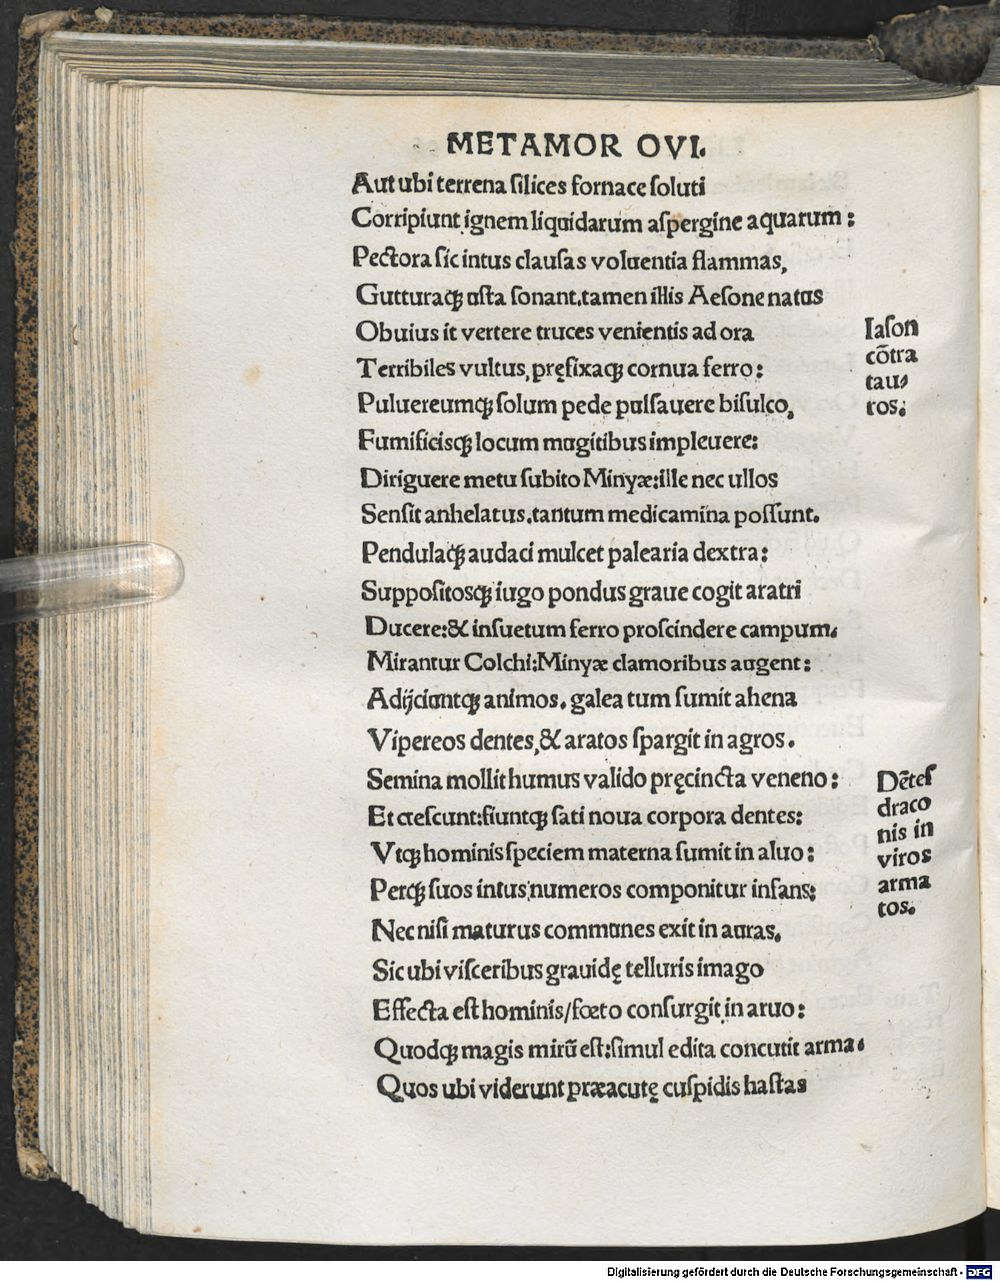 METAMOR OVI.
Aut ubi terrena ſilices fornace ſoluti
Corripiunt ignem liquidarum aſpergine aquarum:
Pectora ſic intus clauſas voluentia flammas,
Gutturaqꝫ uſta ſonant.tamen illis Aeſone natus
Obuius it vertere truces venientis ad ora
Terribiles vultus,pręfixaqꝫ cornua ferro:
Puluereumqꝫ ſolum pede pulſauere biſulco,
Fumificisqꝫ locum mugitibus impleuere:
Diriguere metu ſubito Minyæ:ille nec ullos
Senſit anhelatus.tantum medicamina poſſunt.
Pendulaqꝫ audaci mulcet palearia dextra:
Suppoſitosqꝫ iugo pondus graue cogit aratri
Ducere:& inſuetum ferro proſcindere campum.
Mirantur Colchi:Minyæ clamoribus augent:
Adijciuntqꝫ animos. galea tum ſumit ahena
Vipereos dentes,& aratos ſpargit in agros.
Semina mollit humus valido pręcincta veneno:
Et creſcunt:fiuntqꝫ ſati noua corpora dentes:
Vtqꝫ hominis ſpeciem materna ſumit in aluo:
Perqꝫ ſuos intus numeros componitur infans:
Nec niſi maturus communes exit in auras.
Sic ubi viſceribus grauidę telluris imago
Effecta eſt hominis/fœto conſurgit in aruo:
Quodqꝫ magis mirũ eſt:ſimul edita concutit arma.
Quos ubi viderunt præacutę cuſpidis haſtas
Iaſon
cõtra
tau⸗
ros.
Dẽteſ
draco
nis in
viros
arma
tos.
Digitalisierung gefördert durch die Deutsche Forschungsgemeinschaft - DFG